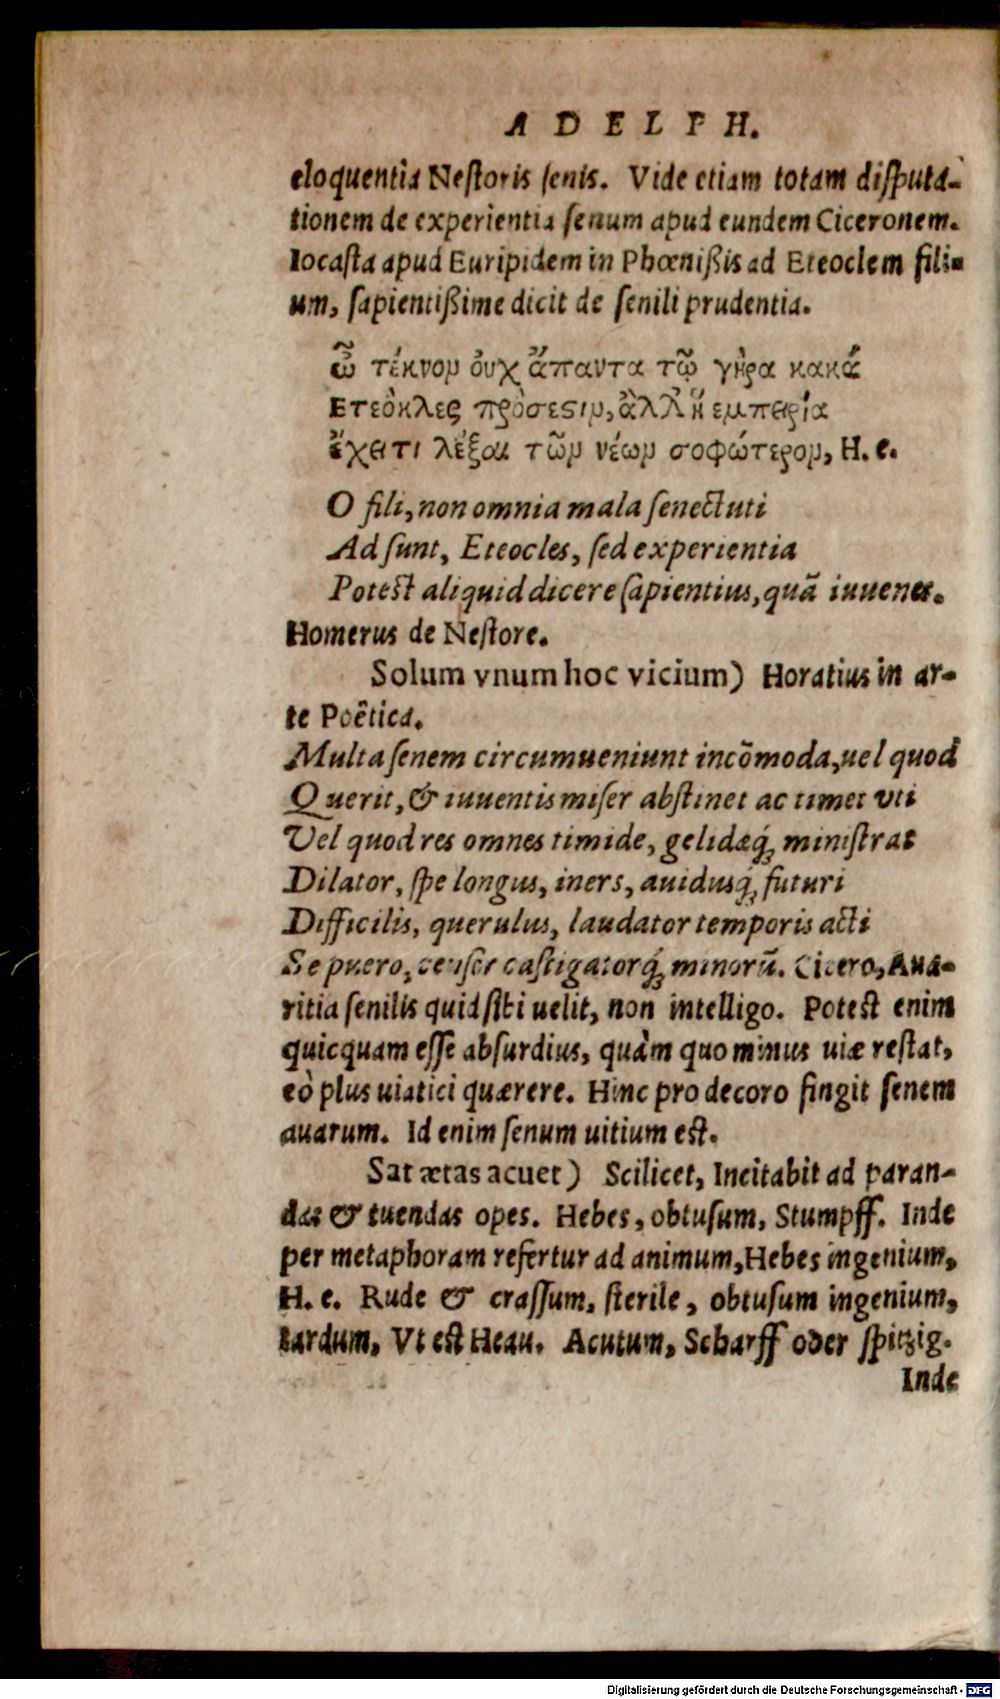 ADELPH.
eloquentia Neſtoris ſenis. Vide etiam totam diſputa-
tionem de experientia ſenum apud eundem Ciceronem.
Iocaſta apud Euripidem in Phœnißis ad Eteoclem fili-
um, ſapientißime dicit de ſenili prudentia.
ὦ τέκνον ὀυχ ἅπαντα τῷ γήρᾳ κακά
Ετεόκλες πρόσεστιν, ἀλλ᾽ ἡ εμπειρία
ἔχει τι λέξαι τῶν νέων σοφώτερον, H. e.
O fili, non omnia mala ſenectuti
Adſunt, Eteocles, ſed experientia
Poteſt aliquid dicere ſapientius, quã iuuenes.
Homerus de Neſtore.
Solum vnum hoc vicium) Horatius in ar-
te Poëtica.
Multa ſenem circumueniunt incõmoda, uel quod
Querit, & inuentis miſer abſtinet ac timet vti
Vel quod res omnes timide, gelidæq́; miniſtrat
Dilator, ſpe longus, iners, auidusq́; futuri
Difficilis, querulus, laudator temporis acti
Se puero, cenſor caſtigatorq́; minorũ. Cicero, Aua-
ritia ſenilis quid ſibi uelit, non intelligo. Poteſt enim
quicquam eſſe abſurdius, quàm quo minus uiæ reſtat,
eò plus uiatici quærere. Hinc pro decoro fingit ſenem
auarum. Id enim ſenum uitium eſt.
Sat ætas acuet) Scilicet, Incitabit ad paran-
das & tuendas opes. Hebes, obtuſum, Stumpff. Inde
per metaphoram refertur ad animum, Hebes ingenium,
H. e. Rude & craſſum, ſterile, obtuſum ingenium,
tardum, Vt eſt Heau. Acutum, Scharff oder ſpitzig.
Inde
Digitalisierung gefördert durch die Deutsche Forschungsgemeinschaft - DFG